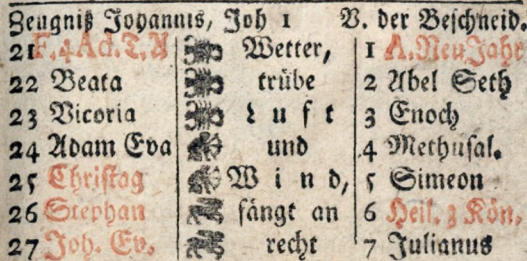 Zeugniß Johannis, Joh 1 V. der Beschneid.
21 F. 4 Ad. T. A Wetter, 1 A. Neu Jahr
22 Beata trübe 2 Abel Seth
23 Vicoria Luft 3 Enoch
24 Adam Eva und 4 Methusal.
25 Christag Wind, 5 Simeon
26 Stephan fängt an 6 Heil. 3 Kön.
27 Joh. Ev. recht 7 Julianus